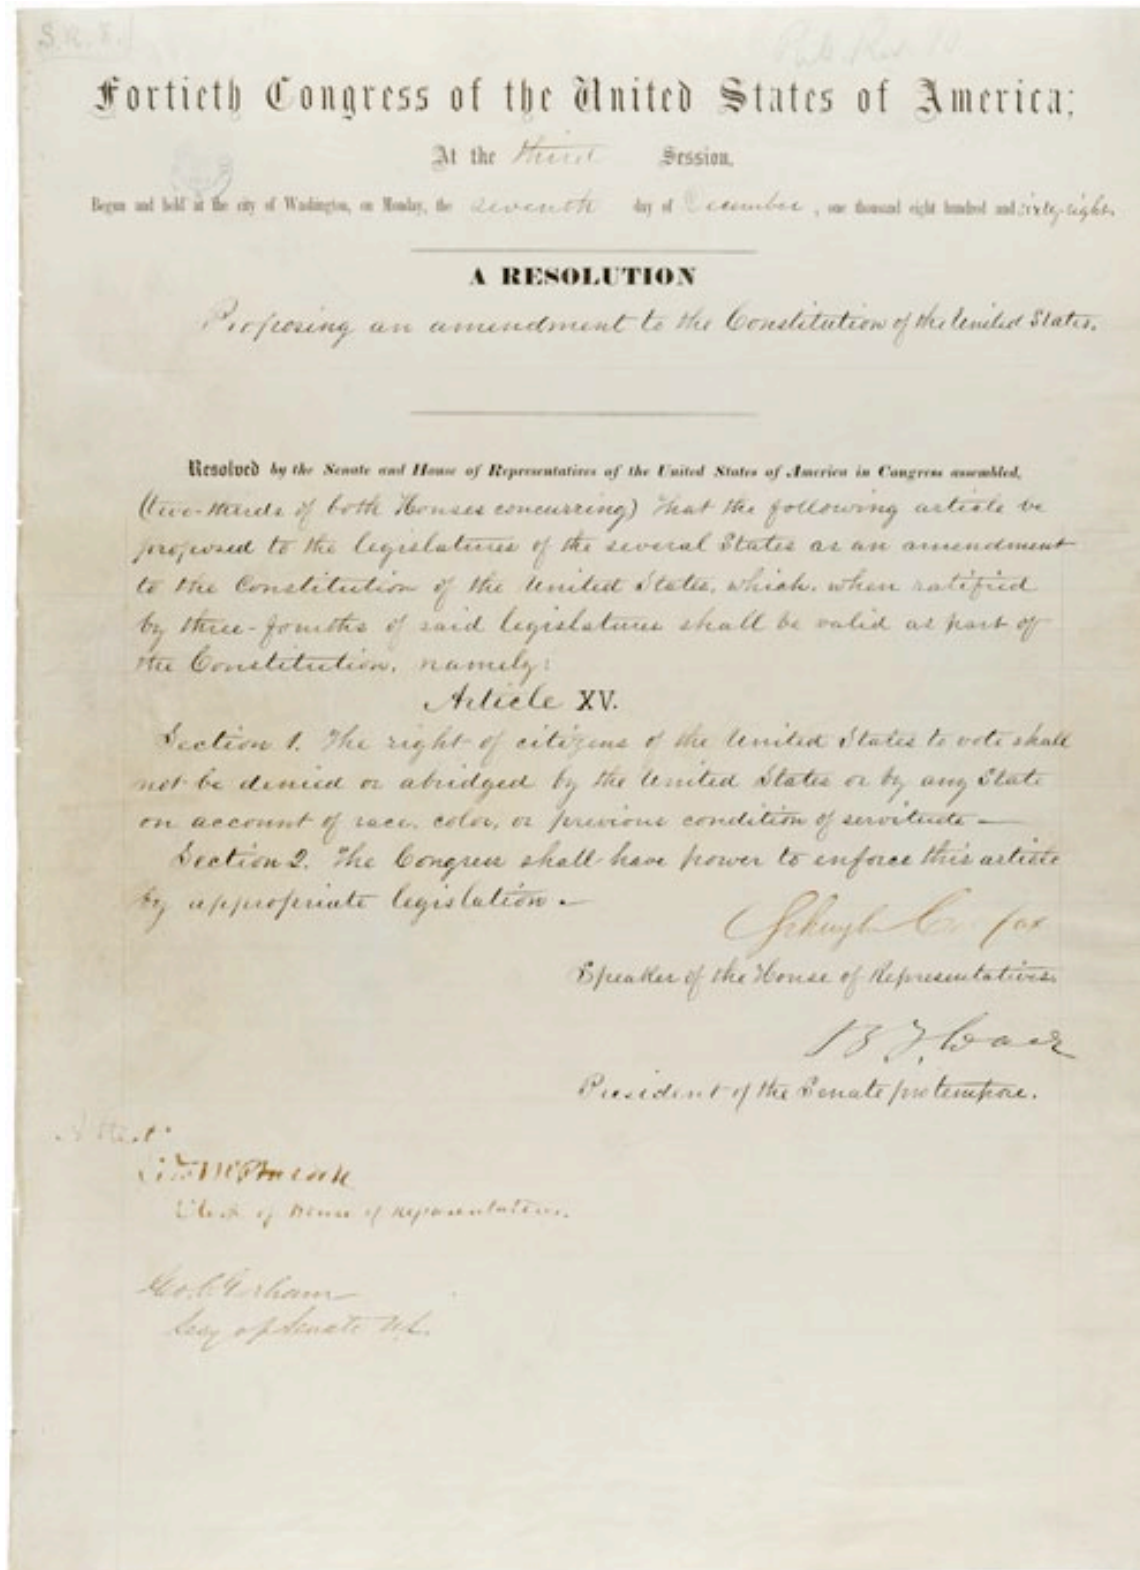 S.R. 8.
Fortieth Congress of the United States of America;
At the third Session,
Begun and held at the city of Washington, on Monday, the seventh day of December, one thousand eight hundred and sixty-eight.
A RESOLUTION
Proposing an amendment to the Constitution of the United States.
Resolved by the Senate and House of Representatives of the United States of America in Congress assembled,
(two-thirds of both Houses concurring) That the following article be
proposed to the legislatures of the several States as an amendment
to the Constitution of the United States, which, when ratified
by three-fourths of said legislatures shall be valid as part of
the Constitution, namely:
Article XV.
Section 1. The right of citizens of the United States to vote shall
not be denied or abridged by the United States or by any State
on account of race, color, or previous condition of servitude —
Section 2. The Congress shall have power to enforce this article
by appropriate legislation —
Schuyler Colfax
Speaker of the House of Representatives.
B F Wade
President of the Senate pro tempore.
Attest:
Edwd McPherson
Clerk of House of Representatives.
Geo. C. Gorham
Secy of Senate U.S.